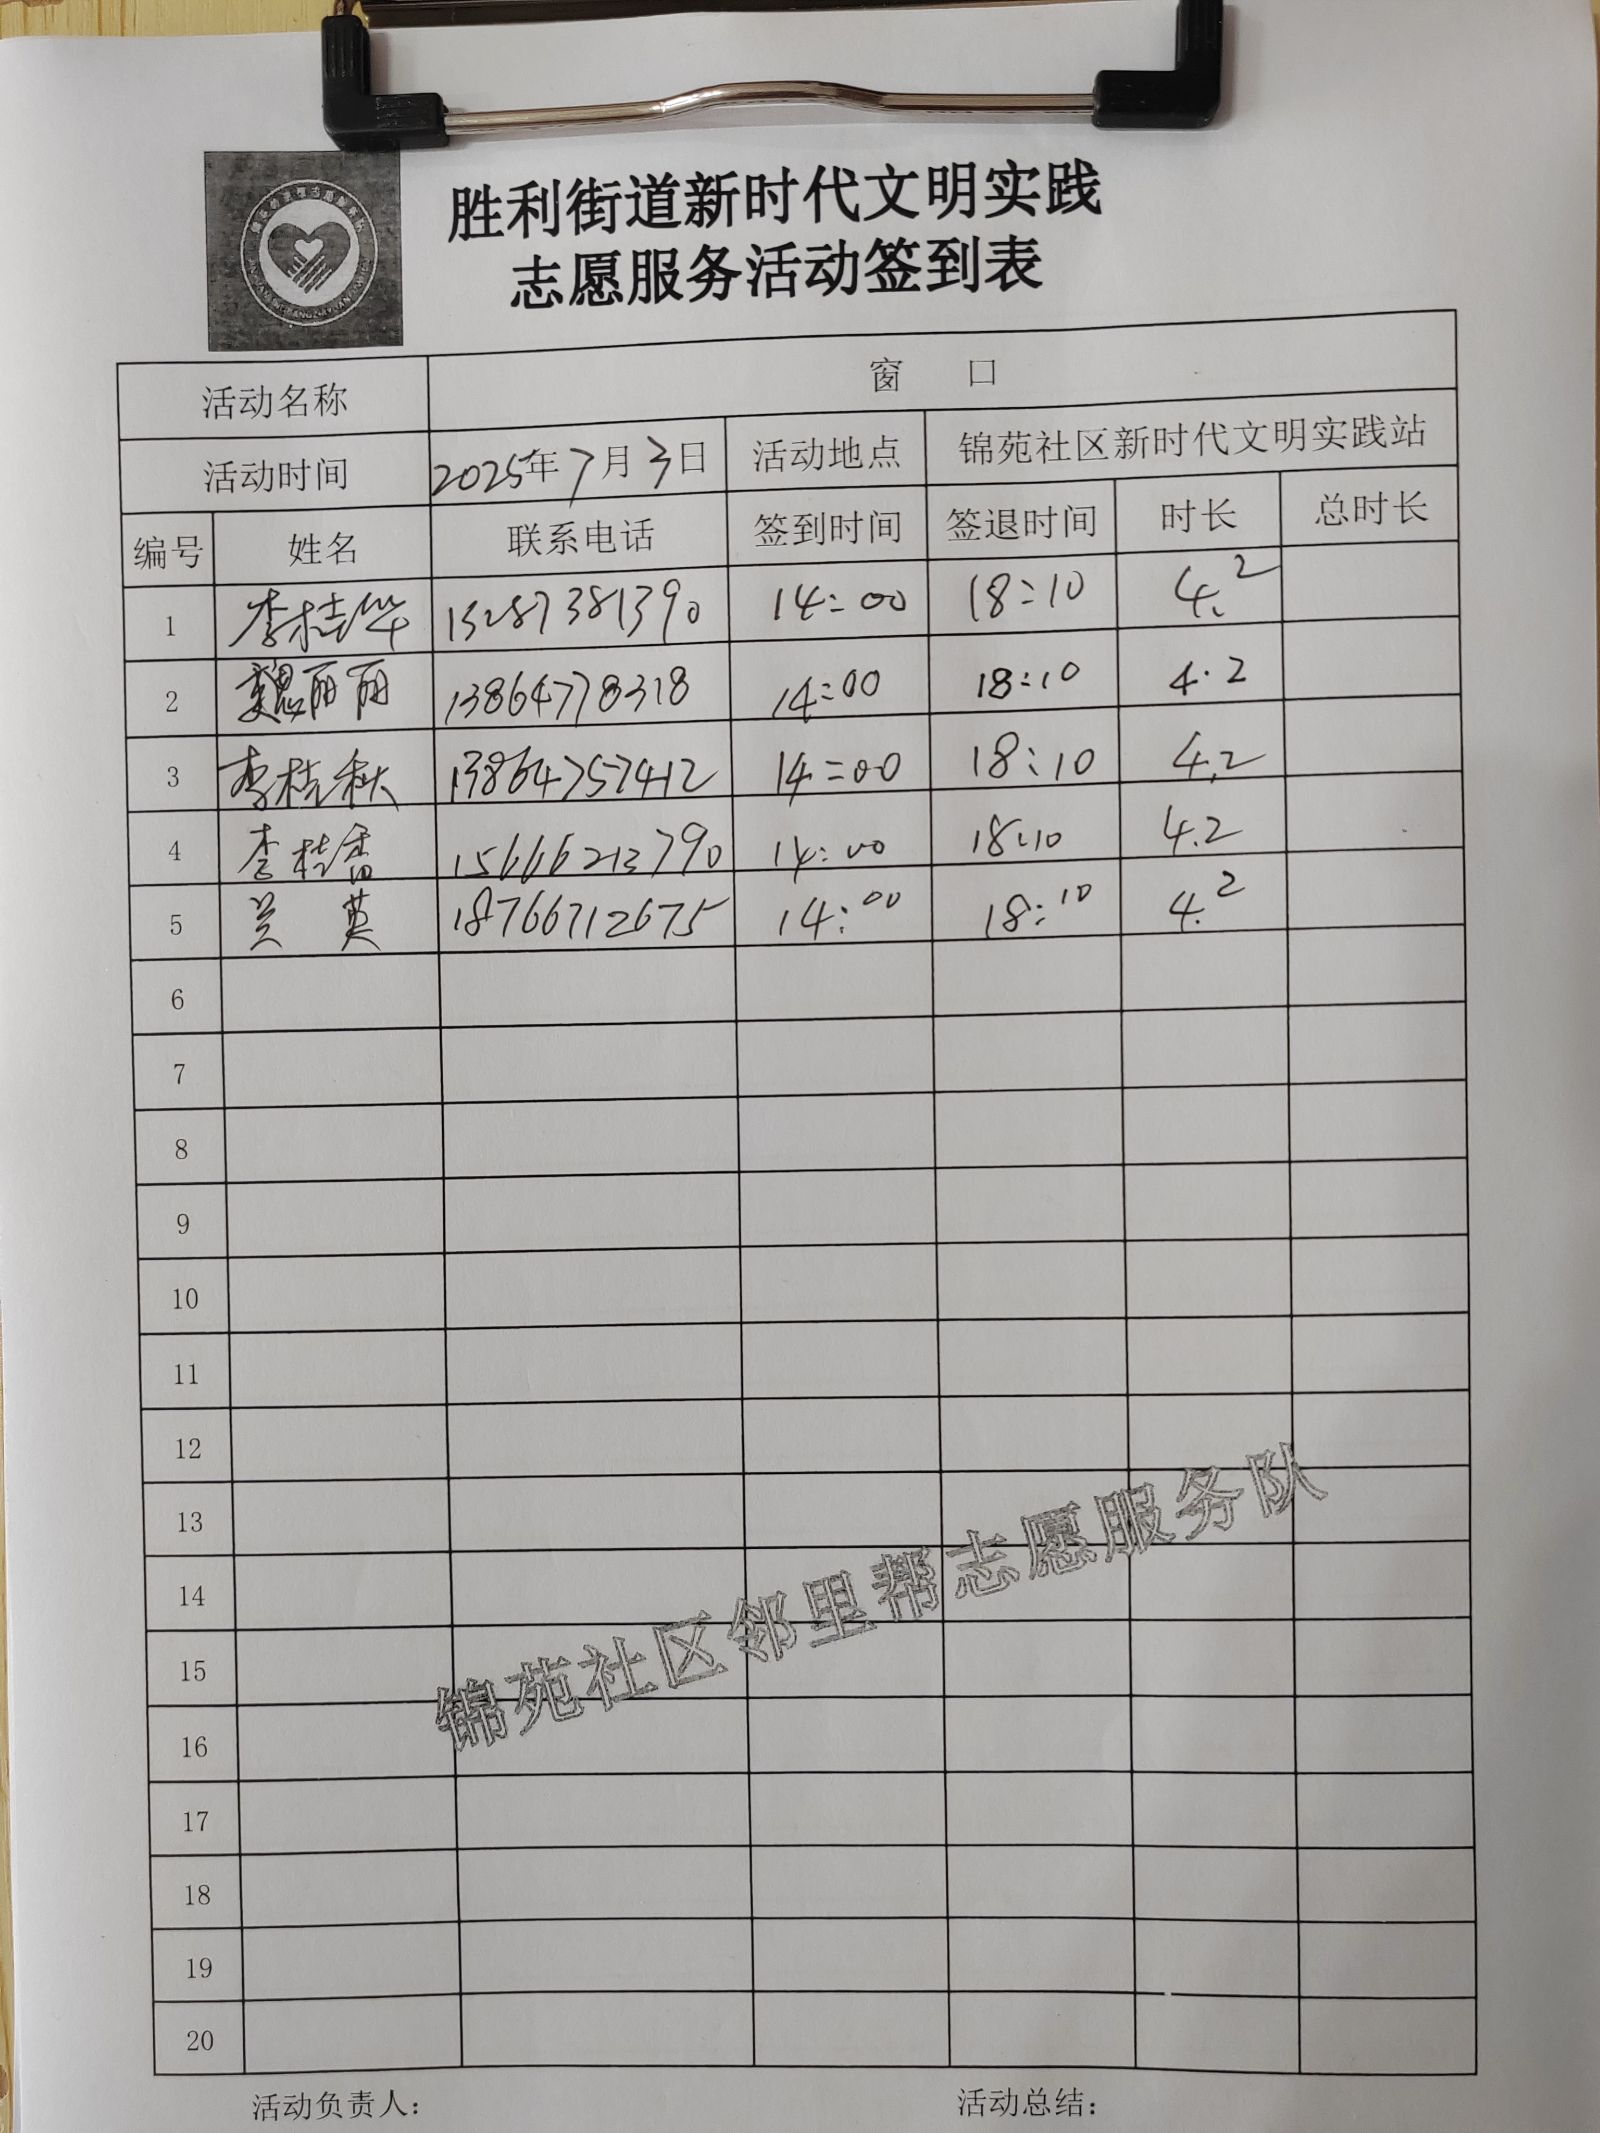 胜利街道新时代文明实践
志愿服务活动签到表
活动名称 窗 口
活动时间 2025年7月3日 活动地点 锦苑社区新时代文明实践站
编号 姓名 联系电话 签到时间 签退时间 时长 总时长
1 李桂华 15287381390 14:00 18:10 4.2
2 魏丽丽 13864778318 14:00 18:10 4.2
3 李桂秋 13864757412 14:00 18:10 4.2
4 李桂香 15666213790 14:00 18:10 4.2
5 吴英 18766712675 14:00 18:10 4.2
6
7
8
9
10
11
12
13
14
15
16
17
18
19
20
锦苑社区邻里帮志愿服务队
活动负责人: 活动总结: